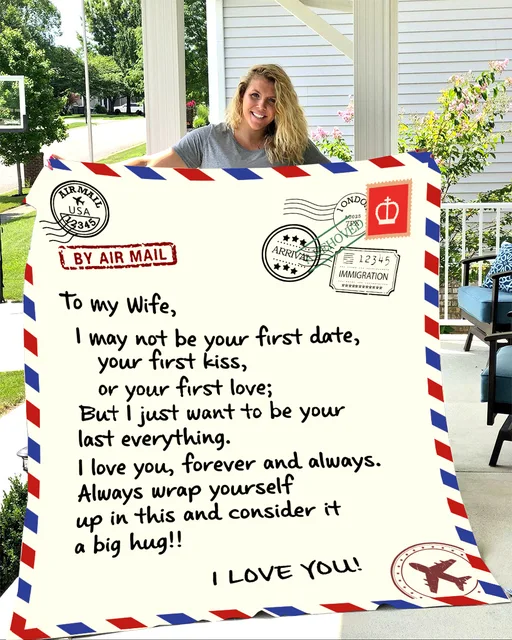 AIR MAIL
USA
12345
BY AIR MAIL
LONDON
ARRIVAL
12345
IMMIGRATION
To my Wife,
I may not be your first date,
your first kiss,
or your first love;
But I just want to be your
last everything.
I love you, forever and always.
Always wrap yourself
up in this and consider it
a big hug!!
I LOVE YOU!